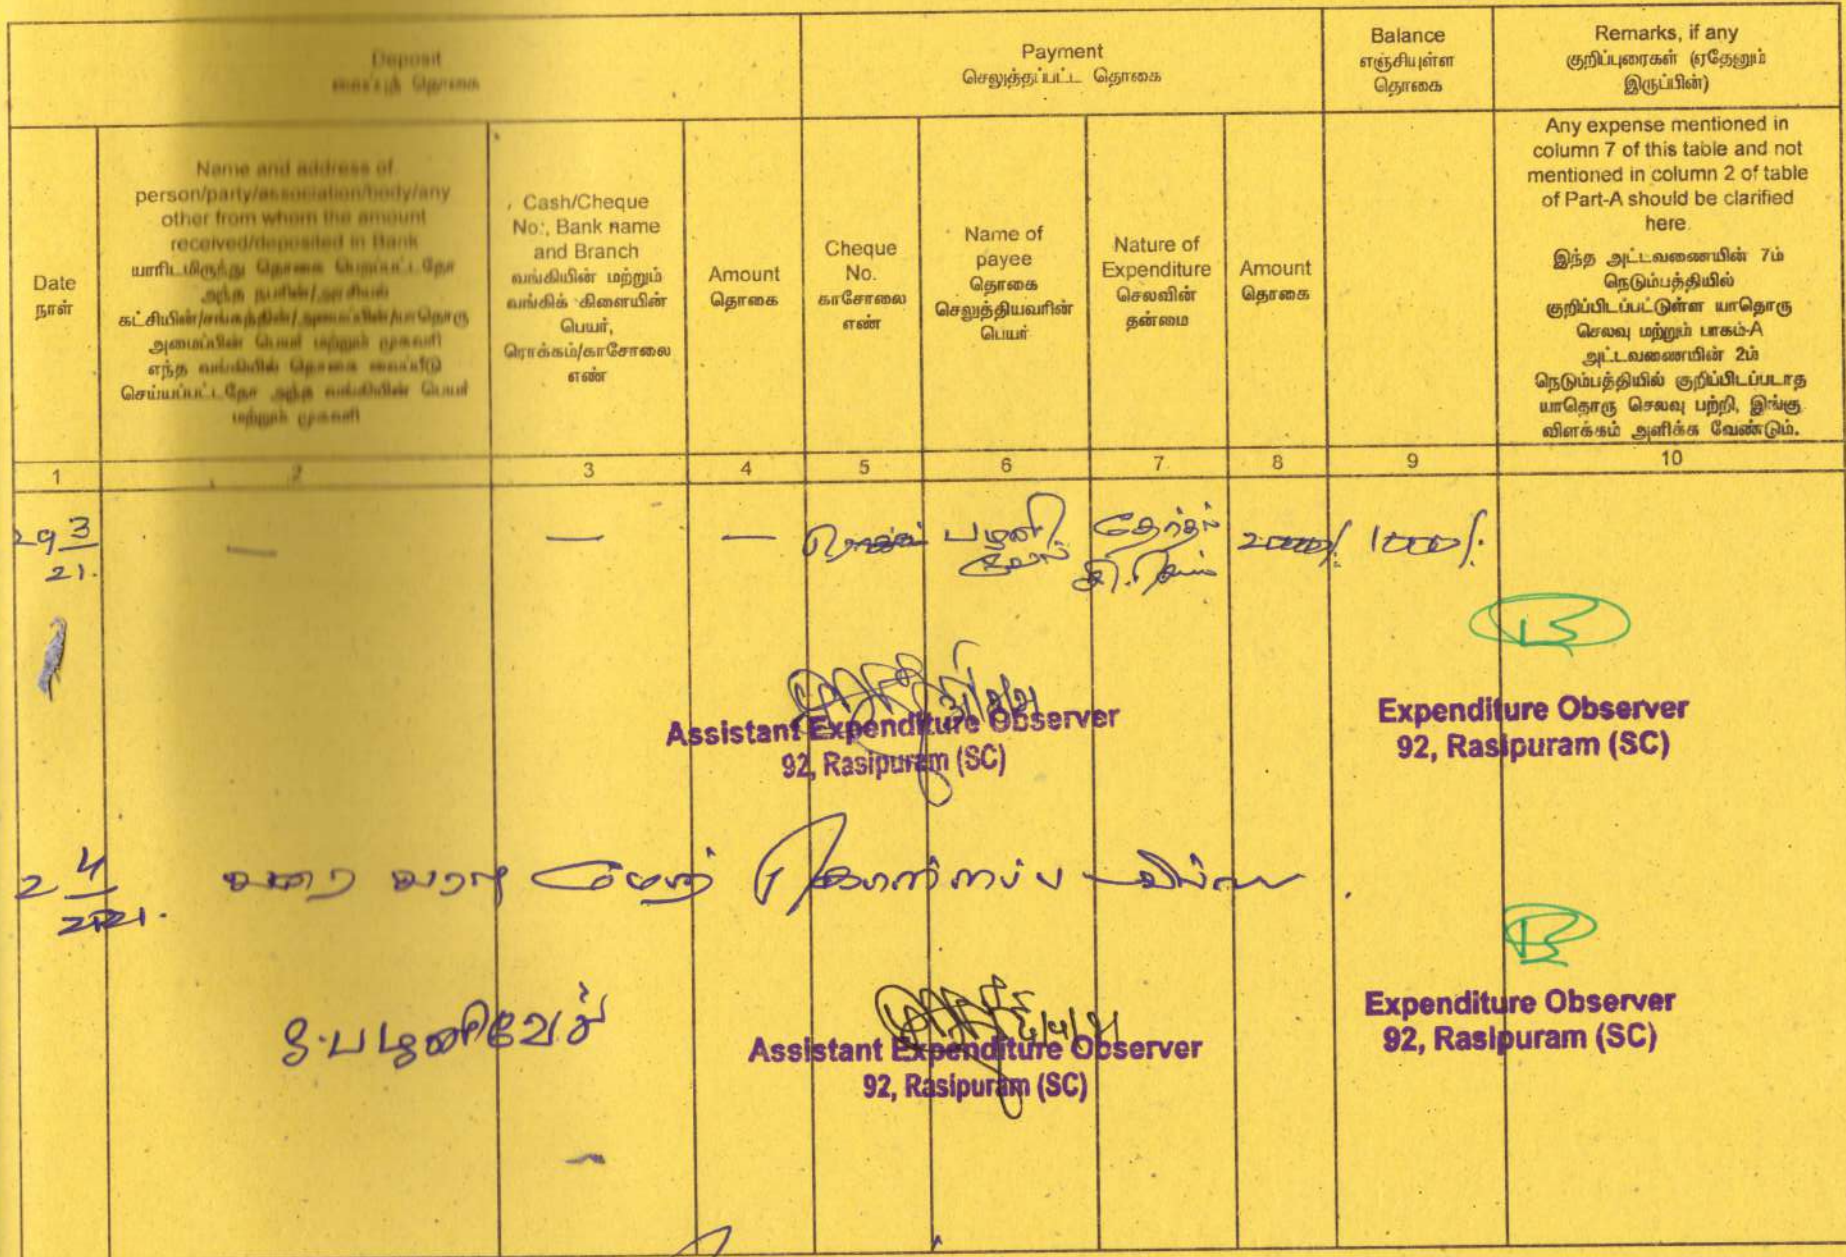 Deposit
வைப்புத் தொகை
Payment
செலுத்தப்பட்ட தொகை
Balance
எஞ்சியுள்ள
தொகை
Remarks, if any
குறிப்புரைகள் (ஏதேனும்
இருப்பின்)
Date
நாள்
Name and address of
person/party/association/body/any
other from whom the amount
received/deposited in Bank
யாரிடமிருந்து தொகை பெறப்பட்டதோ
அந்த நபரின்/அரசியல்
கட்சியின்/சங்கத்தின்/அமைப்பின்/யாதொரு
அமைப்பின் பெயர் மற்றும் முகவரி
எந்த வங்கியில் தொகை வைப்பீடு
செய்யப்பட்டதோ அந்த வங்கியின் பெயர்
மற்றும் முகவரி
Cash/Cheque
No:, Bank name
and Branch
வங்கியின் மற்றும்
வங்கிக் கிளையின்
பெயர்,
ரொக்கம்/காசோலை
எண்
Amount
தொகை
Cheque
No.
காசோலை
எண்
Name of
payee
தொகை
செலுத்தியவரின்
பெயர்
Nature of
Expenditure
செலவின்
தன்மை
Amount
தொகை
Any expense mentioned in
column 7 of this table and not
mentioned in column 2 of table
of Part-A should be clarified
here.
இந்த அட்டவணையின் 7ம்
நெடும்பத்தியில்
குறிப்பிடப்பட்டுள்ள யாதொரு
செலவு மற்றும் பாகம்-A
அட்டவணையின் 2ம்
நெடும்பத்தியில் குறிப்பிடப்படாத
யாதொரு செலவு பற்றி, இங்கு
விளக்கம் அளிக்க வேண்டும்.
1 2 3 4 5 6 7 8 9 10
29 3 — — — பழனி தேர்தல் 2000/. 1000/.
21. வேல்
Assistant Expenditure Observer
92, Rasipuram (SC)
Expenditure Observer
92, Rasipuram (SC)
2 4
2021.
S.பழனிவேல்
Assistant Expenditure Observer
92, Rasipuram (SC)
Expenditure Observer
92, Rasipuram (SC)